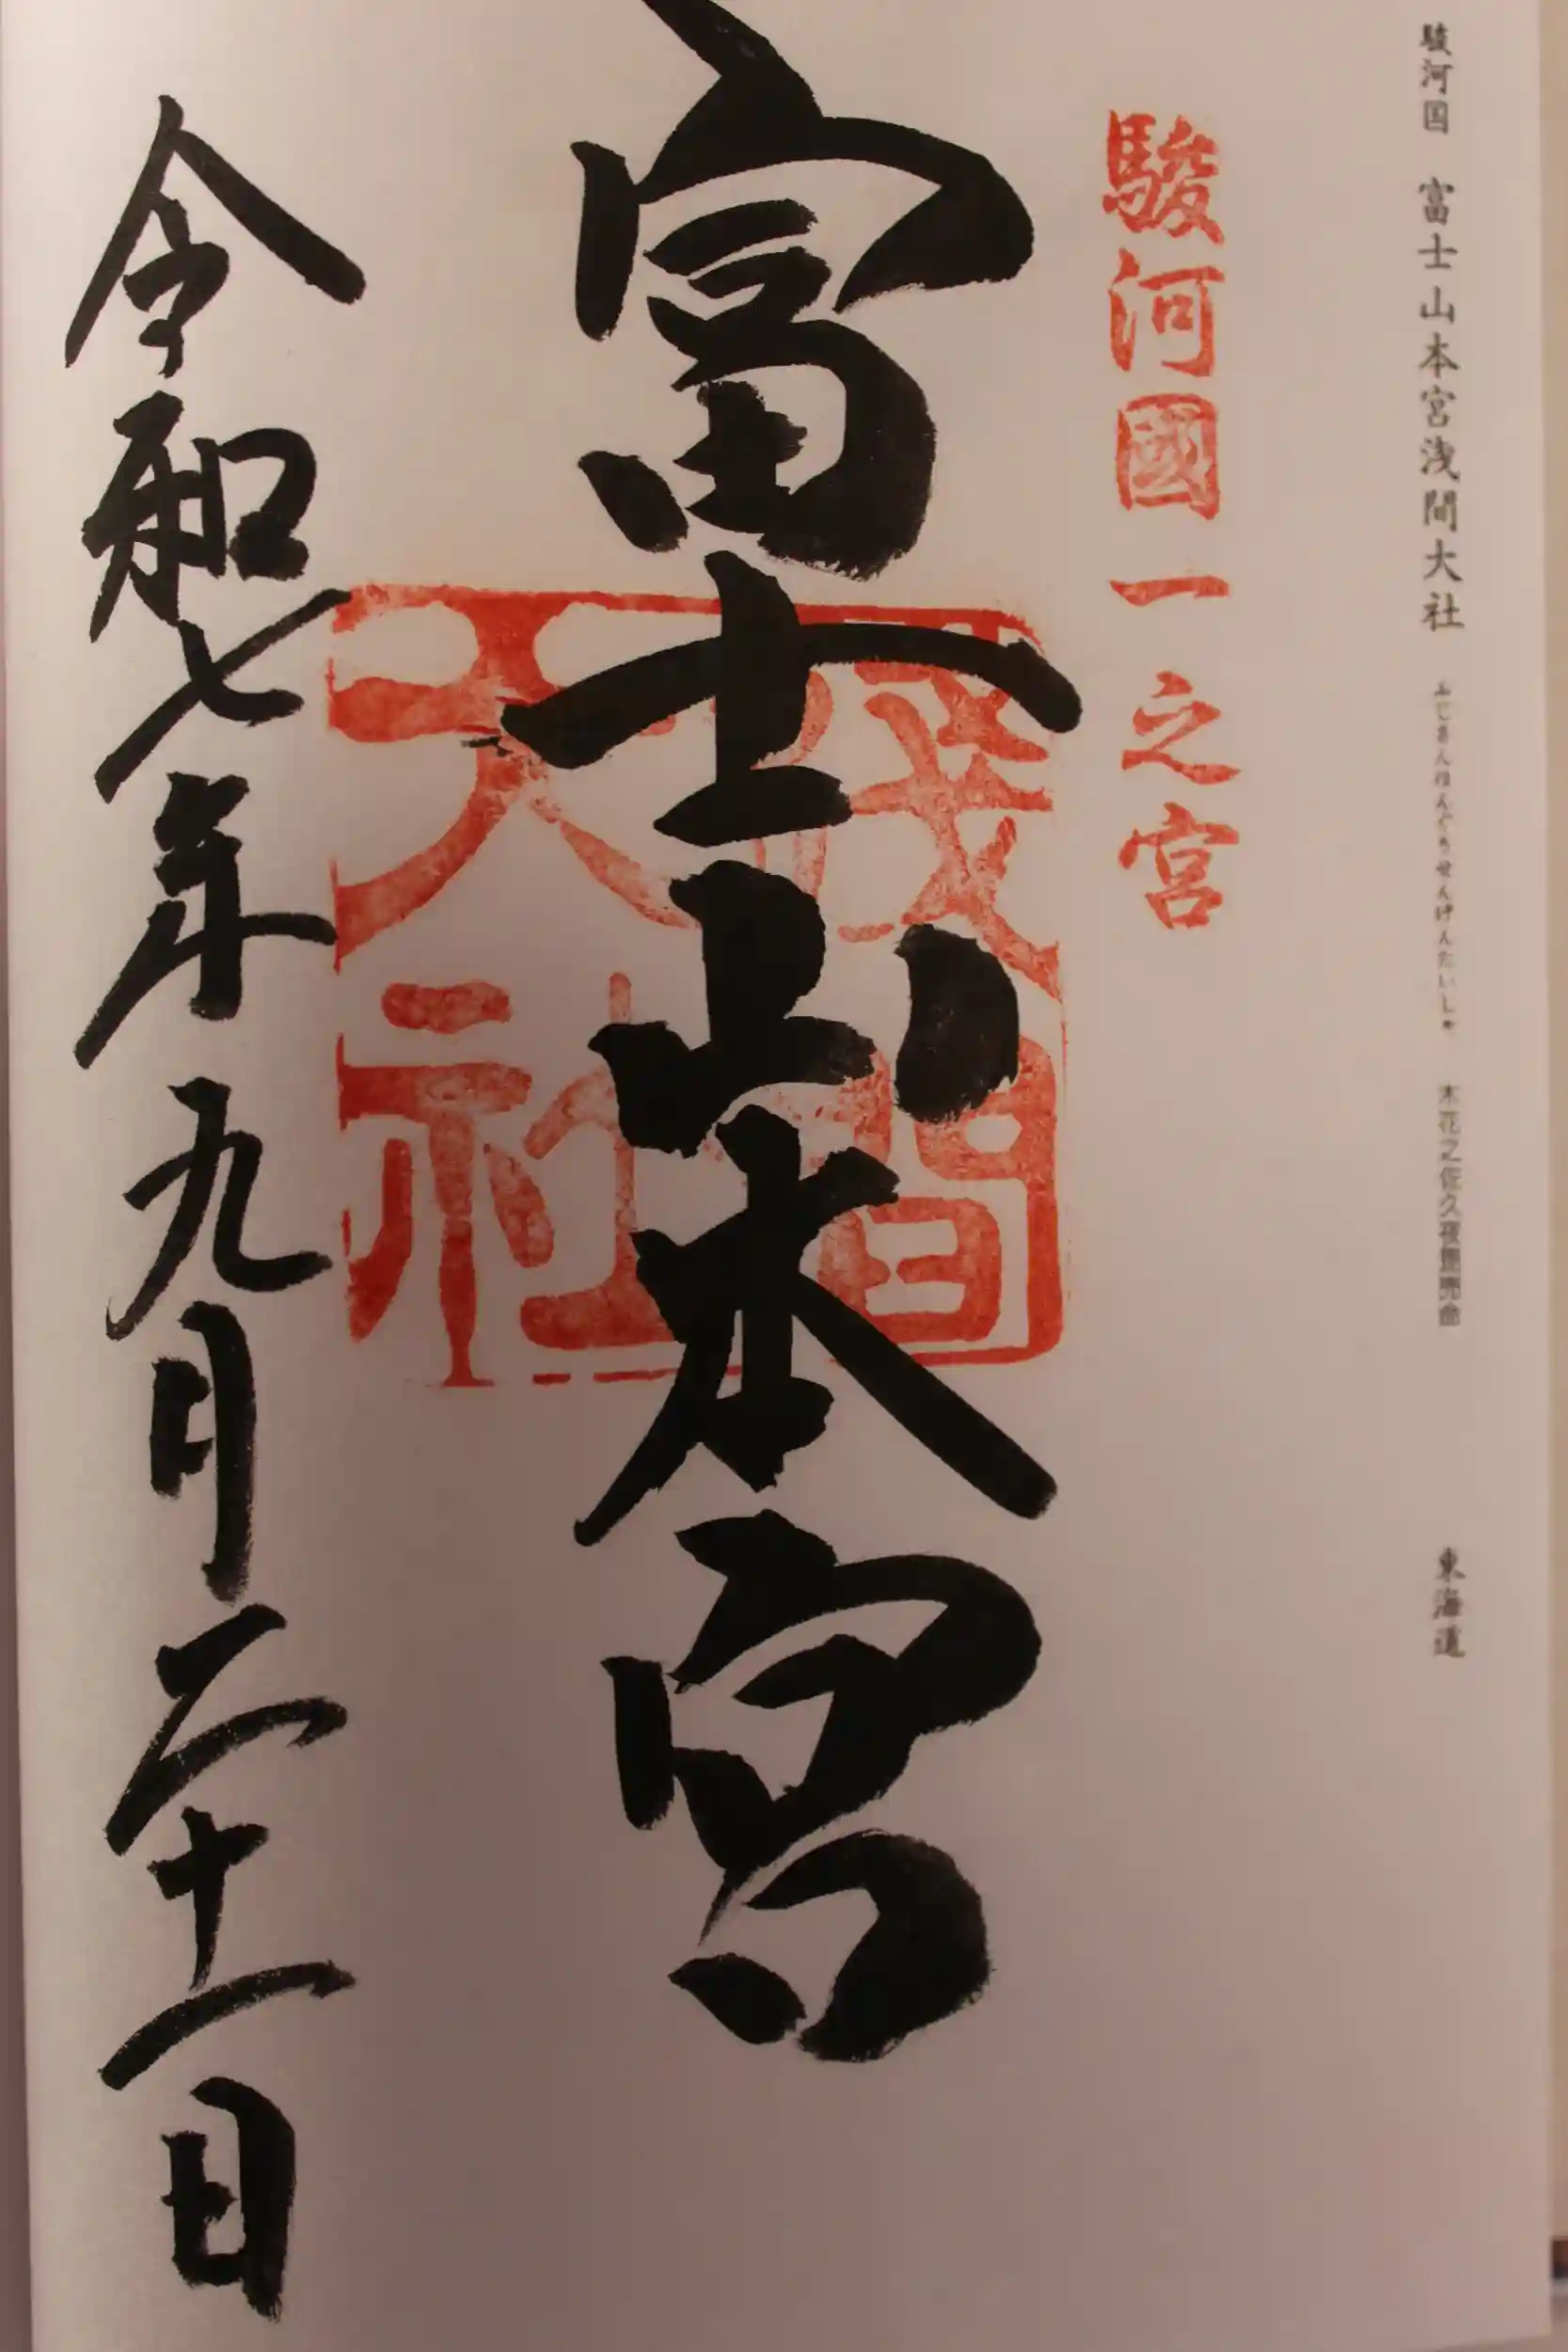 駿河国 富士山本宮浅間大社 ふじさんほんぐうせんげんたいしゃ 木花之佐久夜毘売命 東海道
駿河國一之宮
富士山本宮
浅間大社
令和七年九月二十一日